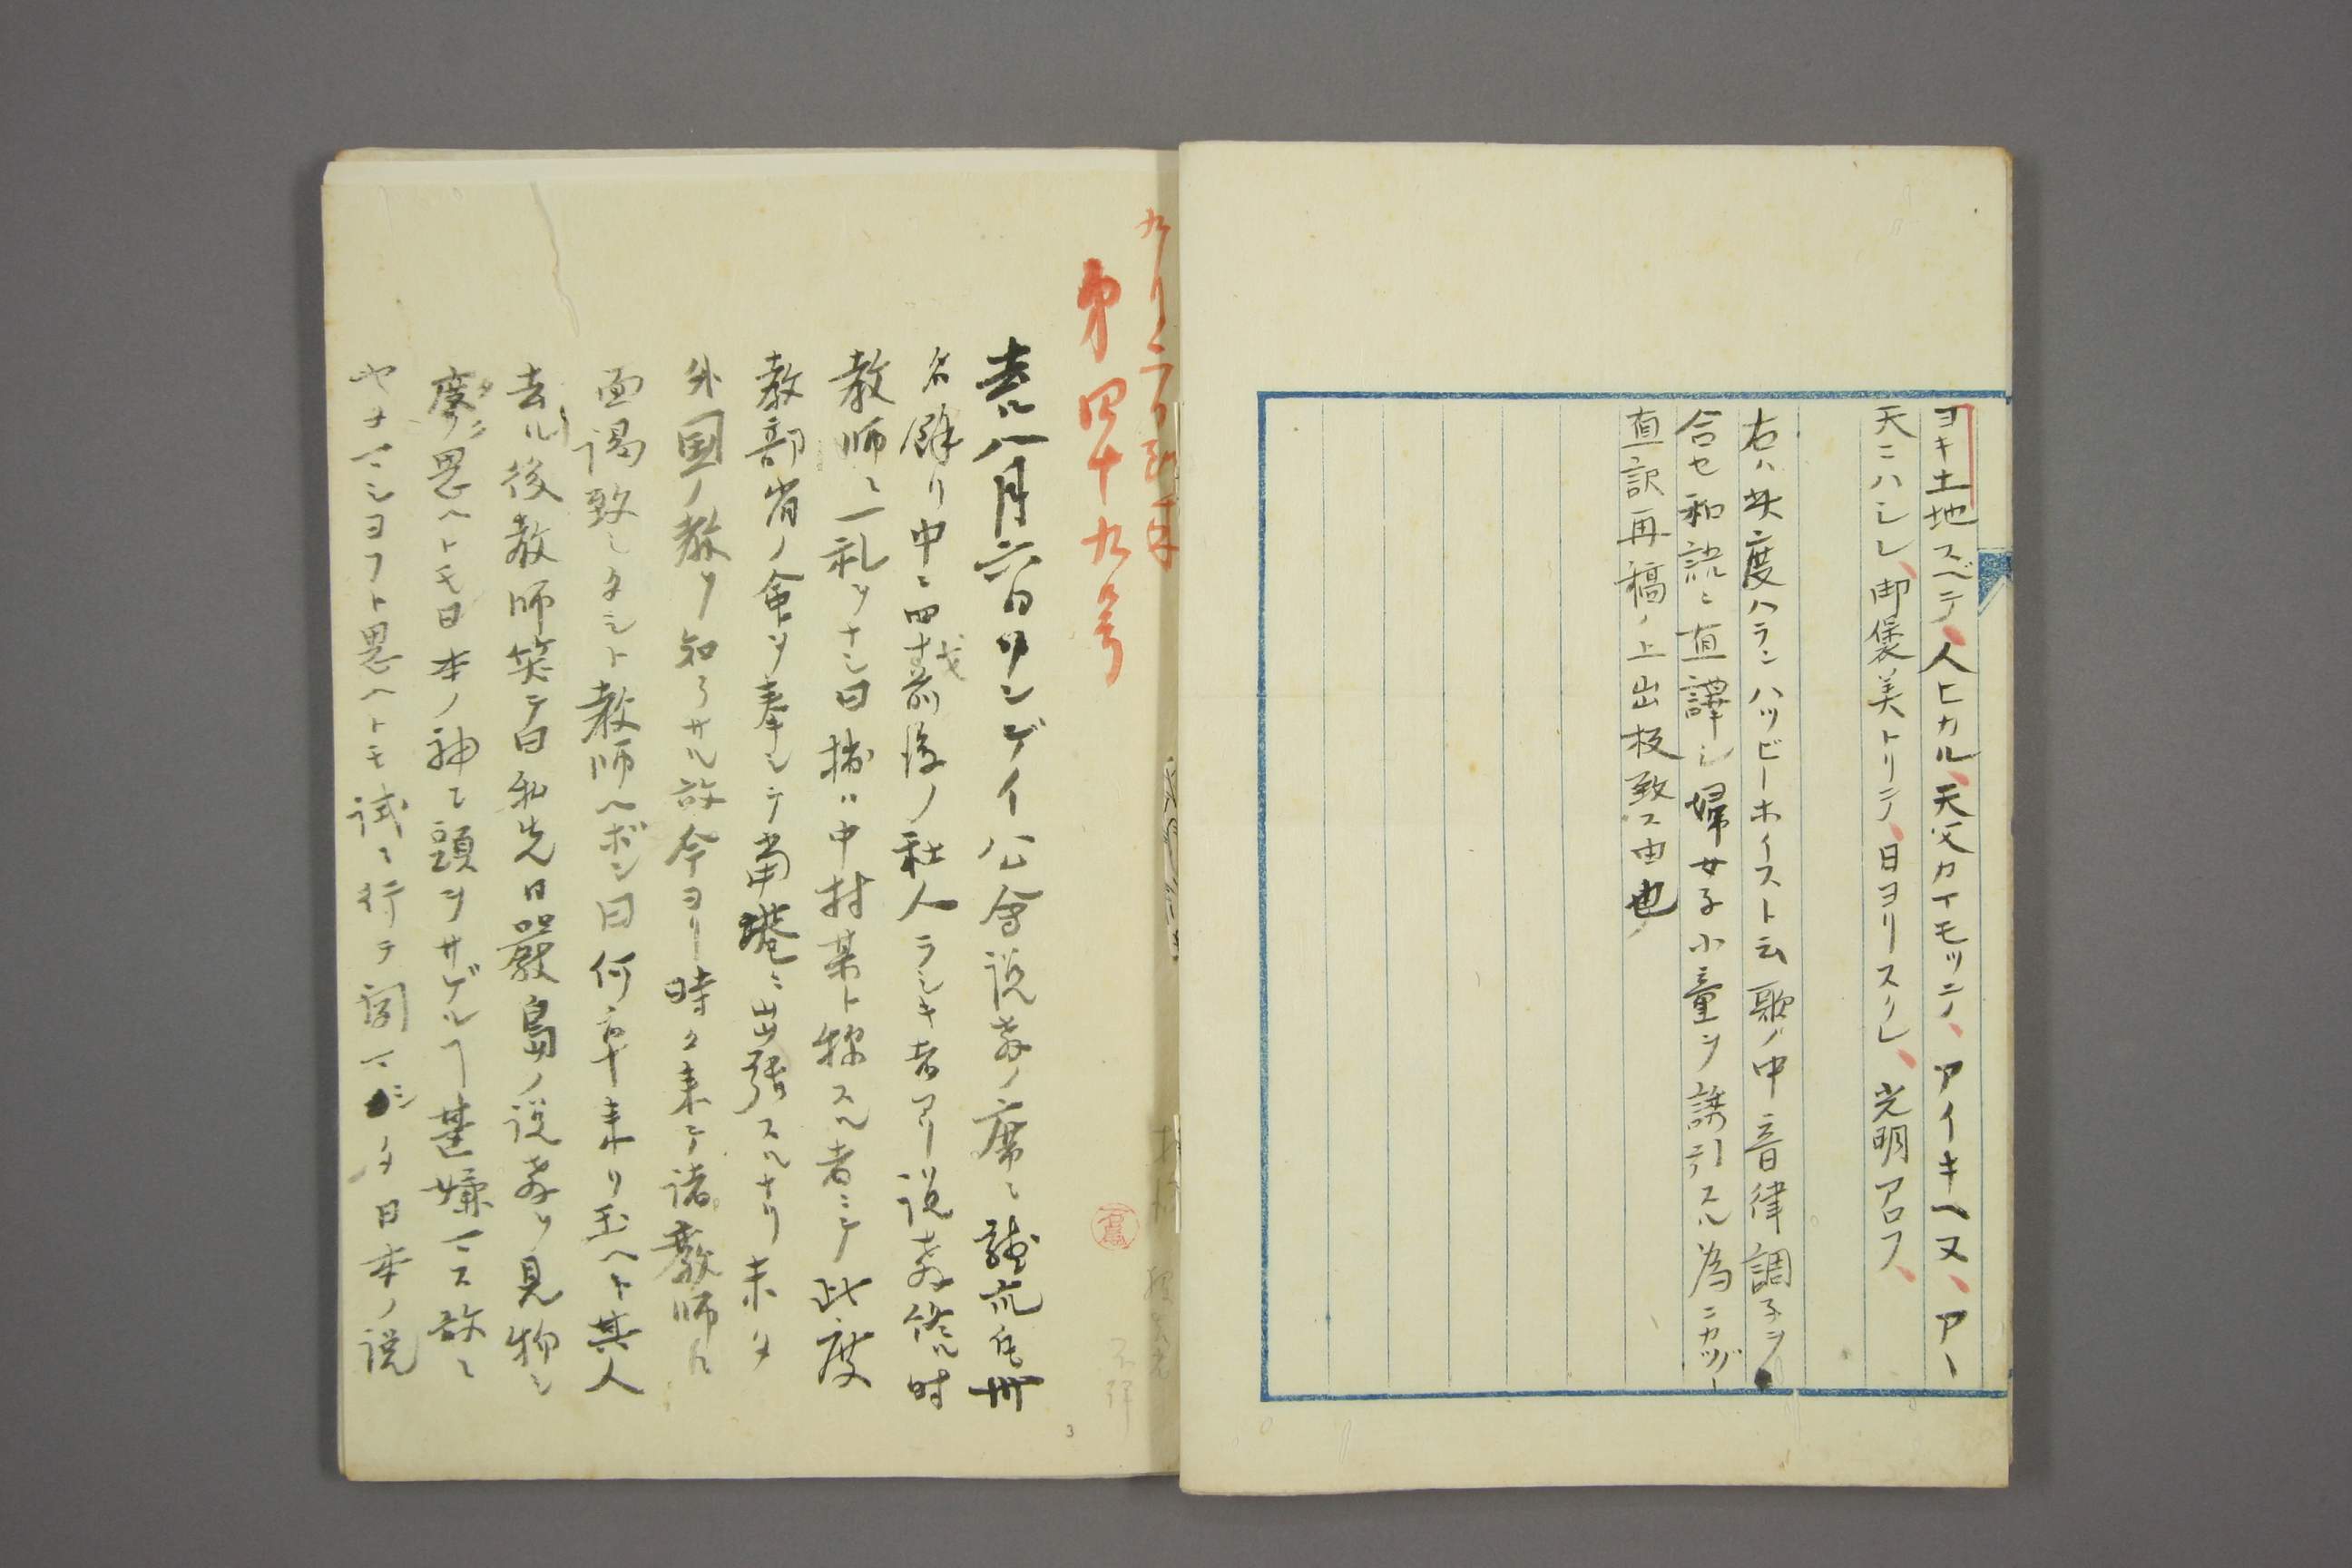 ヨキ土地スベテ、人ヒカル、天父カイモツニノ、アイキヘヌ、アヽ
天ニハシレ、御褒美トリテ、日ヨリスクレ、光明アロフ、
右ハ此度ハランハッピーホイスト云歌ノ中音律調子ヲ
合セ和説ニ直譯シ婦女子小童ヲ誘引スル為ニカッパー
直訳再稿ノ上出板致ス由也
第四十九号
去ル八月六日ソンデイ公會説教ノ席ニ聴衆凡卅
名餘リ中ニ四十才前後ノ社人ラシキ者アリ説教終ル時
教師ニ一礼ヲナシ曰拙ハ中村某ト称スル者ニテ此度
教部省ノ命ヲ奉シテ當港ニ出張スルナリ未タ
外国ノ教ヲ知ラサル故今ヨリ時々来テ諸教師ニ
面謁致シタシト教師ヘボン曰何卒来リ玉ヘト其人
去ル後教師笑テ曰私先日嚴島ノ説教ヲ見物シ
度ク思ヘトモ日本ノ神ニ頭ヲサゲルヿ甚嫌マス故ニ
ヤメマシヨフト思ヘトモ試ニ行テ聞マシタ日本ノ説